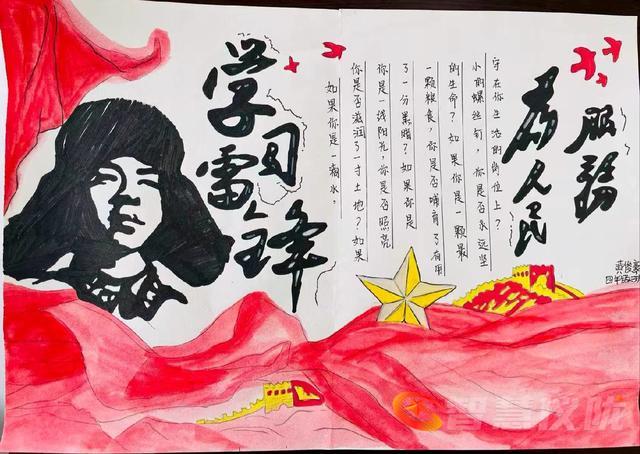 学习
雷锋
如果你是一滴水，
你是否滋润了一寸土地？如果
你是一线阳光，你是否照亮
了一分黑暗？如果你是
一颗粮食，你是否哺育了有用
的生命？如果你是一颗最
小的螺丝钉，你是否永远坚
守在你生活的岗位上？
为人民
服务
智慧仪陇